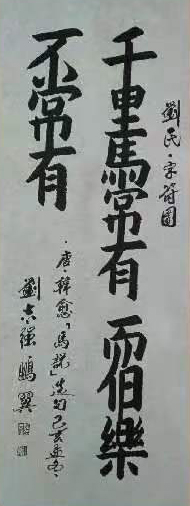 劉氏·宗符圖
千里馬常有而伯樂
不常有
·唐·韓愈「馬說」選句己亥
劉志強 鵬翼